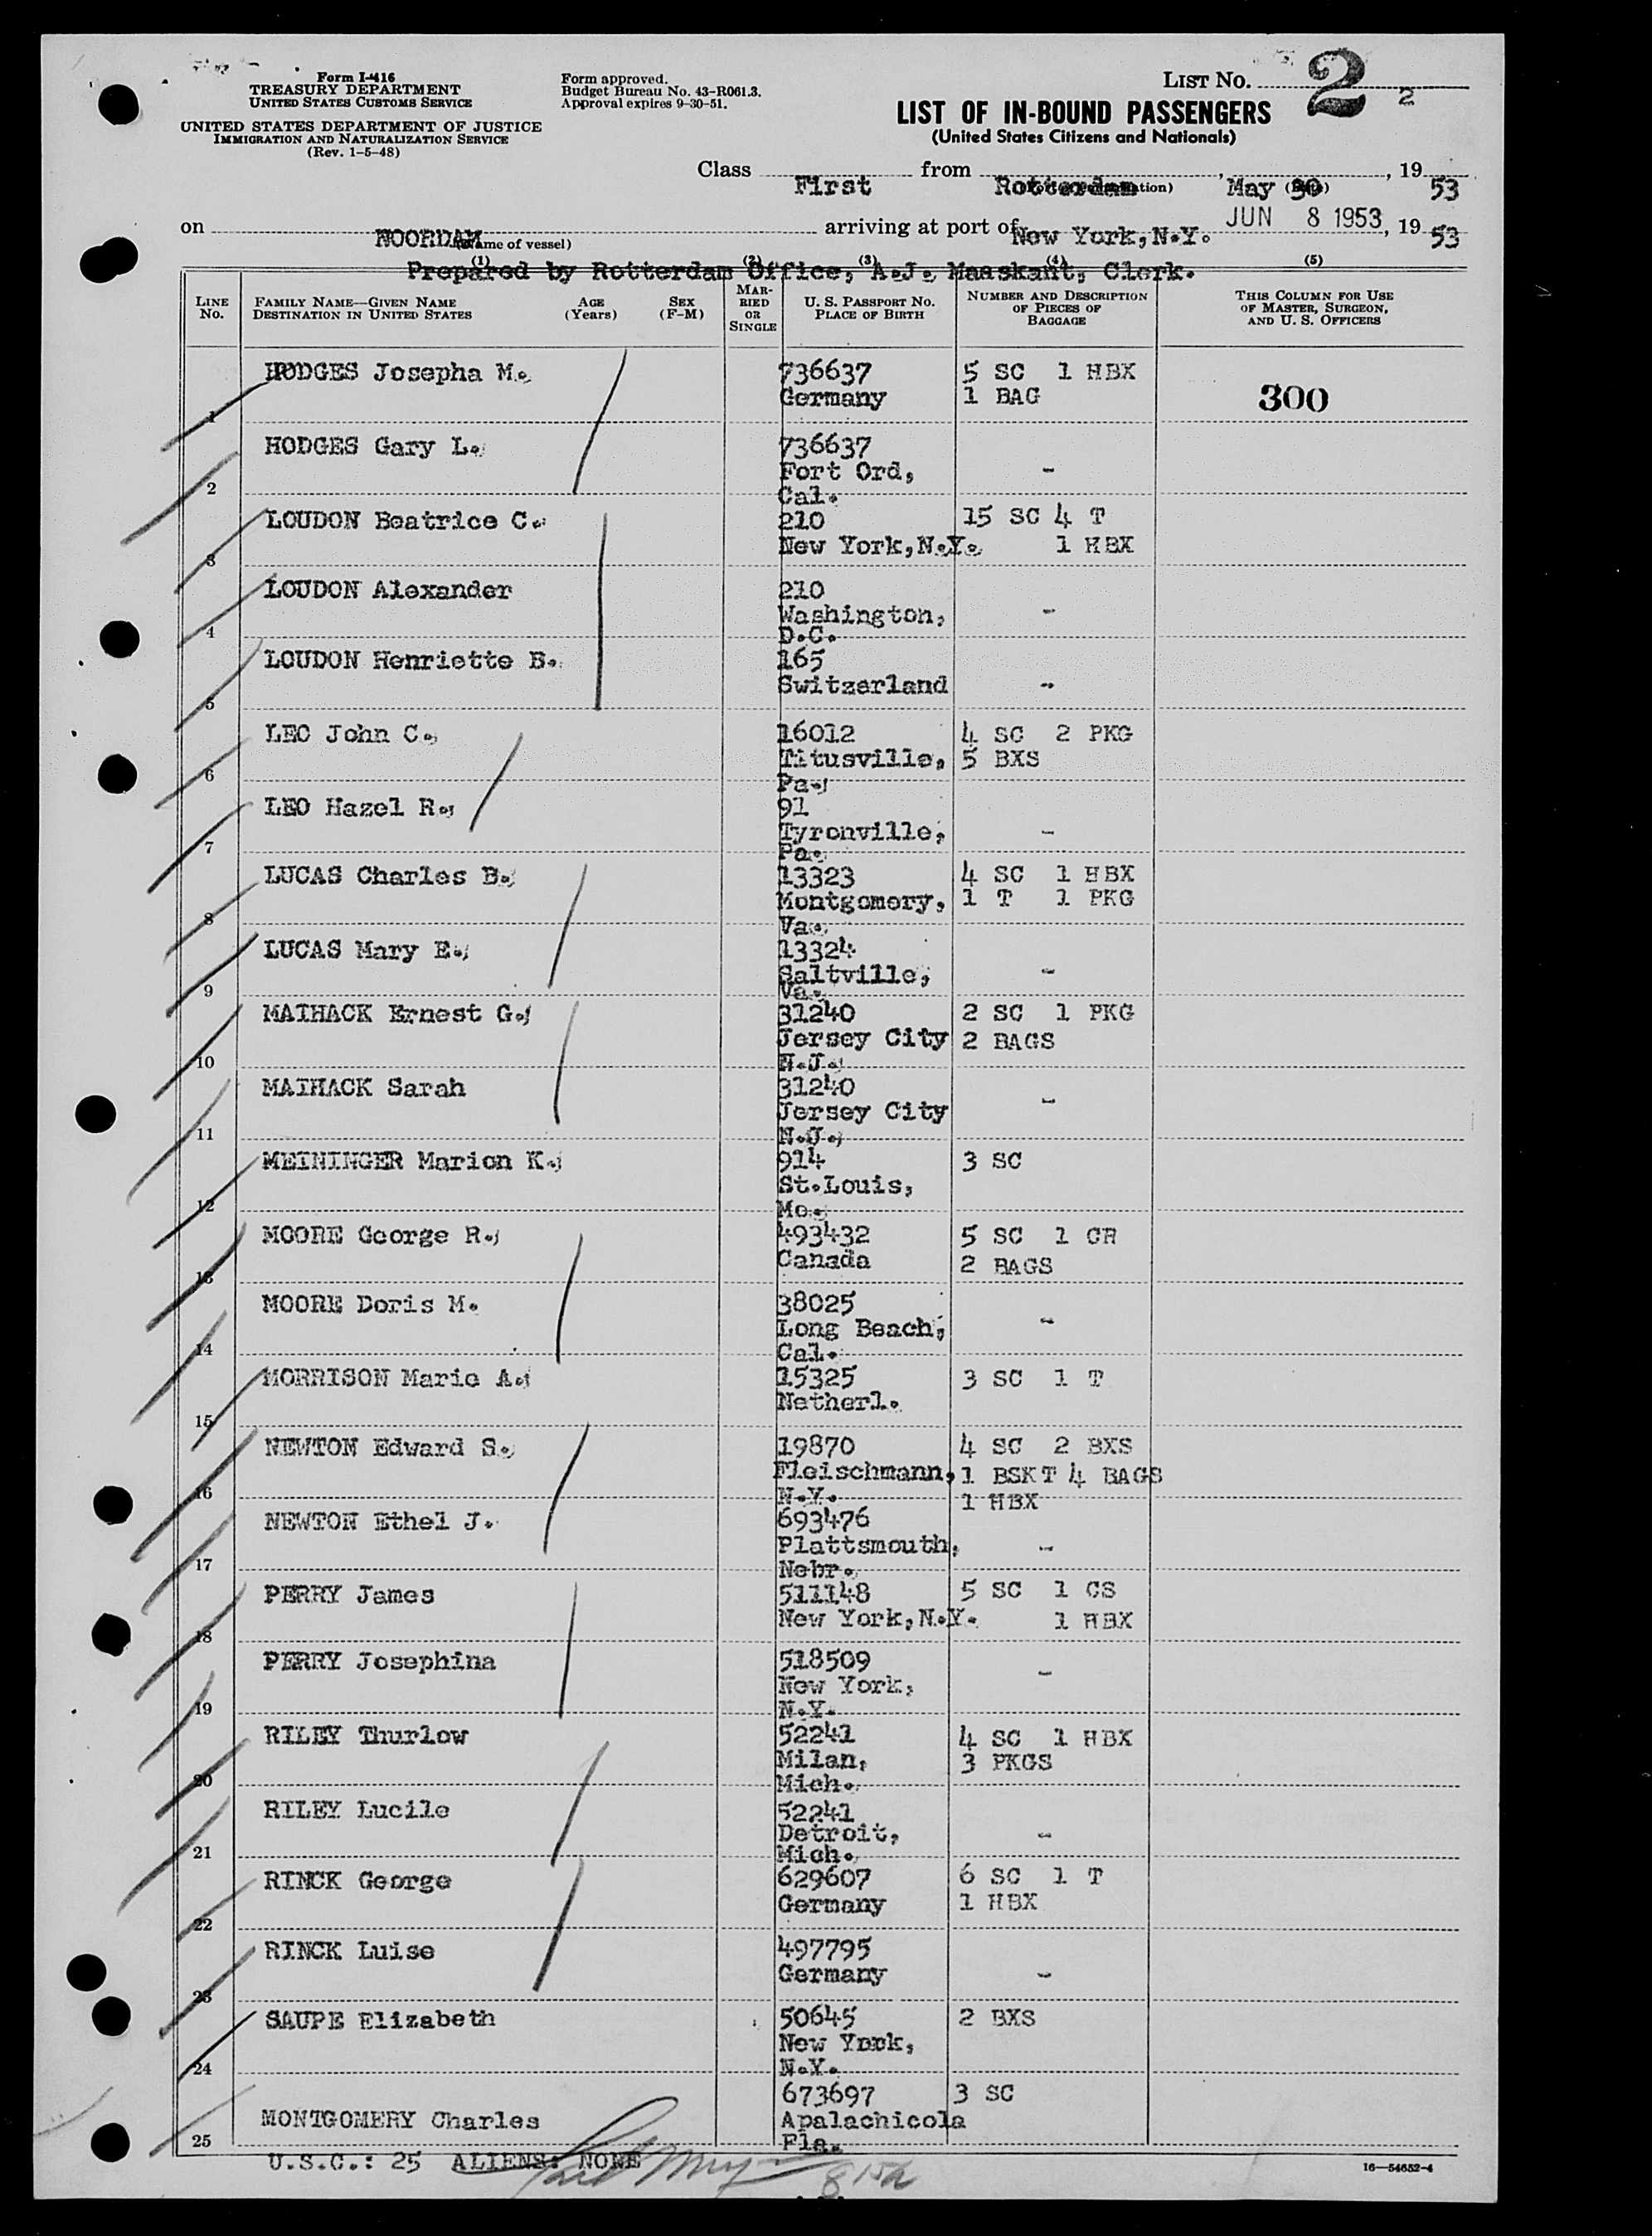 Form I-416
TREASURY DEPARTMENT
UNITED STATES CUSTOMS SERVICE
UNITED STATES DEPARTMENT OF JUSTICE
IMMIGRATION AND NATURALIZATION SERVICE
(Rev. 1-5-48)
Form approved.
Budget Bureau No. 43-R061.3.
Approval expires 9-30-51.
LIST NO. 2
2
LIST OF IN-BOUND PASSENGERS
(United States Citizens and Nationals)
Class First from Rotterdam, May 30, 19 53
on NOORDAM (Name of vessel) arriving at port of New York, N.Y. JUN 8 1953, 19 53
Prepared by Rotterdam Office, A.J. Maaskant, Clerk.
(1) (2) (3) (4) (5)
LINE No. FAMILY NAME—GIVEN NAME DESTINATION IN UNITED STATES AGE (Years) SEX (F-M) MARRIED OR SINGLE U. S. PASSPORT NO. PLACE OF BIRTH NUMBER AND DESCRIPTION OF PIECES OF BAGGAGE THIS COLUMN FOR USE OF MASTER, SURGEON, AND U. S. OFFICERS
HODGES Josepha M. 736637 5 SC 1 HBX
1 Germany 1 BAG 300
HODGES Gary L. 736637
2 Fort Ord, -
Cal.
LOUDON Beatrice C. 210 15 SC 4 T
3 New York, N.Y. 1 HBX
LOUDON Alexander 210
4 Washington, -
D.C.
LOUDON Henriette B. 165
5 Switzerland -
LEO John C. 16012 4 SC 2 PKG
6 Titusville, 5 BXS
Pa.
LEO Hazel R. 91
7 Tyronville, -
Pa.
LUCAS Charles B. 13323 4 SC 1 HBX
8 Montgomery, 1 T 1 PKG
Va.
LUCAS Mary E. 13324
9 Saltville, -
Va.
MAIHACK Ernest G. 31240 2 SC 1 PKG
10 Jersey City 2 BAGS
N.J.
MAIHACK Sarah 31240
11 Jersey City -
N.J.
MEININGER Marion K. 914 3 SC
12 St.Louis,
Mo.
MOORE George R. 493432 5 SC 1 CR
13 Canada 2 BAGS
MOORE Doris M. 38025
14 Long Beach, -
Cal.
MORRISON Marie A. 15325 3 SC 1 T
15 Netherl.
NEWTON Edward S. 19870 4 SC 2 BXS
16 Fleischmann, 1 BSKT 4 BAGS
N.Y. 1 HBX
NEWTON Ethel J. 693476
17 Plattsmouth, -
Nebr.
PERRY James 511148 5 SC 1 CS
18 New York, N.Y. 1 HBX
PERRY Josephina 518509
19 New York, -
N.Y.
RILEY Thurlow 52241 4 SC 1 HBX
20 Milan, 3 PKGS
Mich.
RILEY Lucile 52241
21 Detroit, -
Mich.
RINCK George 629607 6 SC 1 T
22 Germany 1 HBX
RINCK Luise 497795
23 Germany -
SAUPE Elizabeth 50645 2 BXS
24 New York,
N.Y.
673697 3 SC
25 MONTGOMERY Charles Apalachicola
Fla.
U.S.C.: 25 ALIENS: NONE
16—54652-4